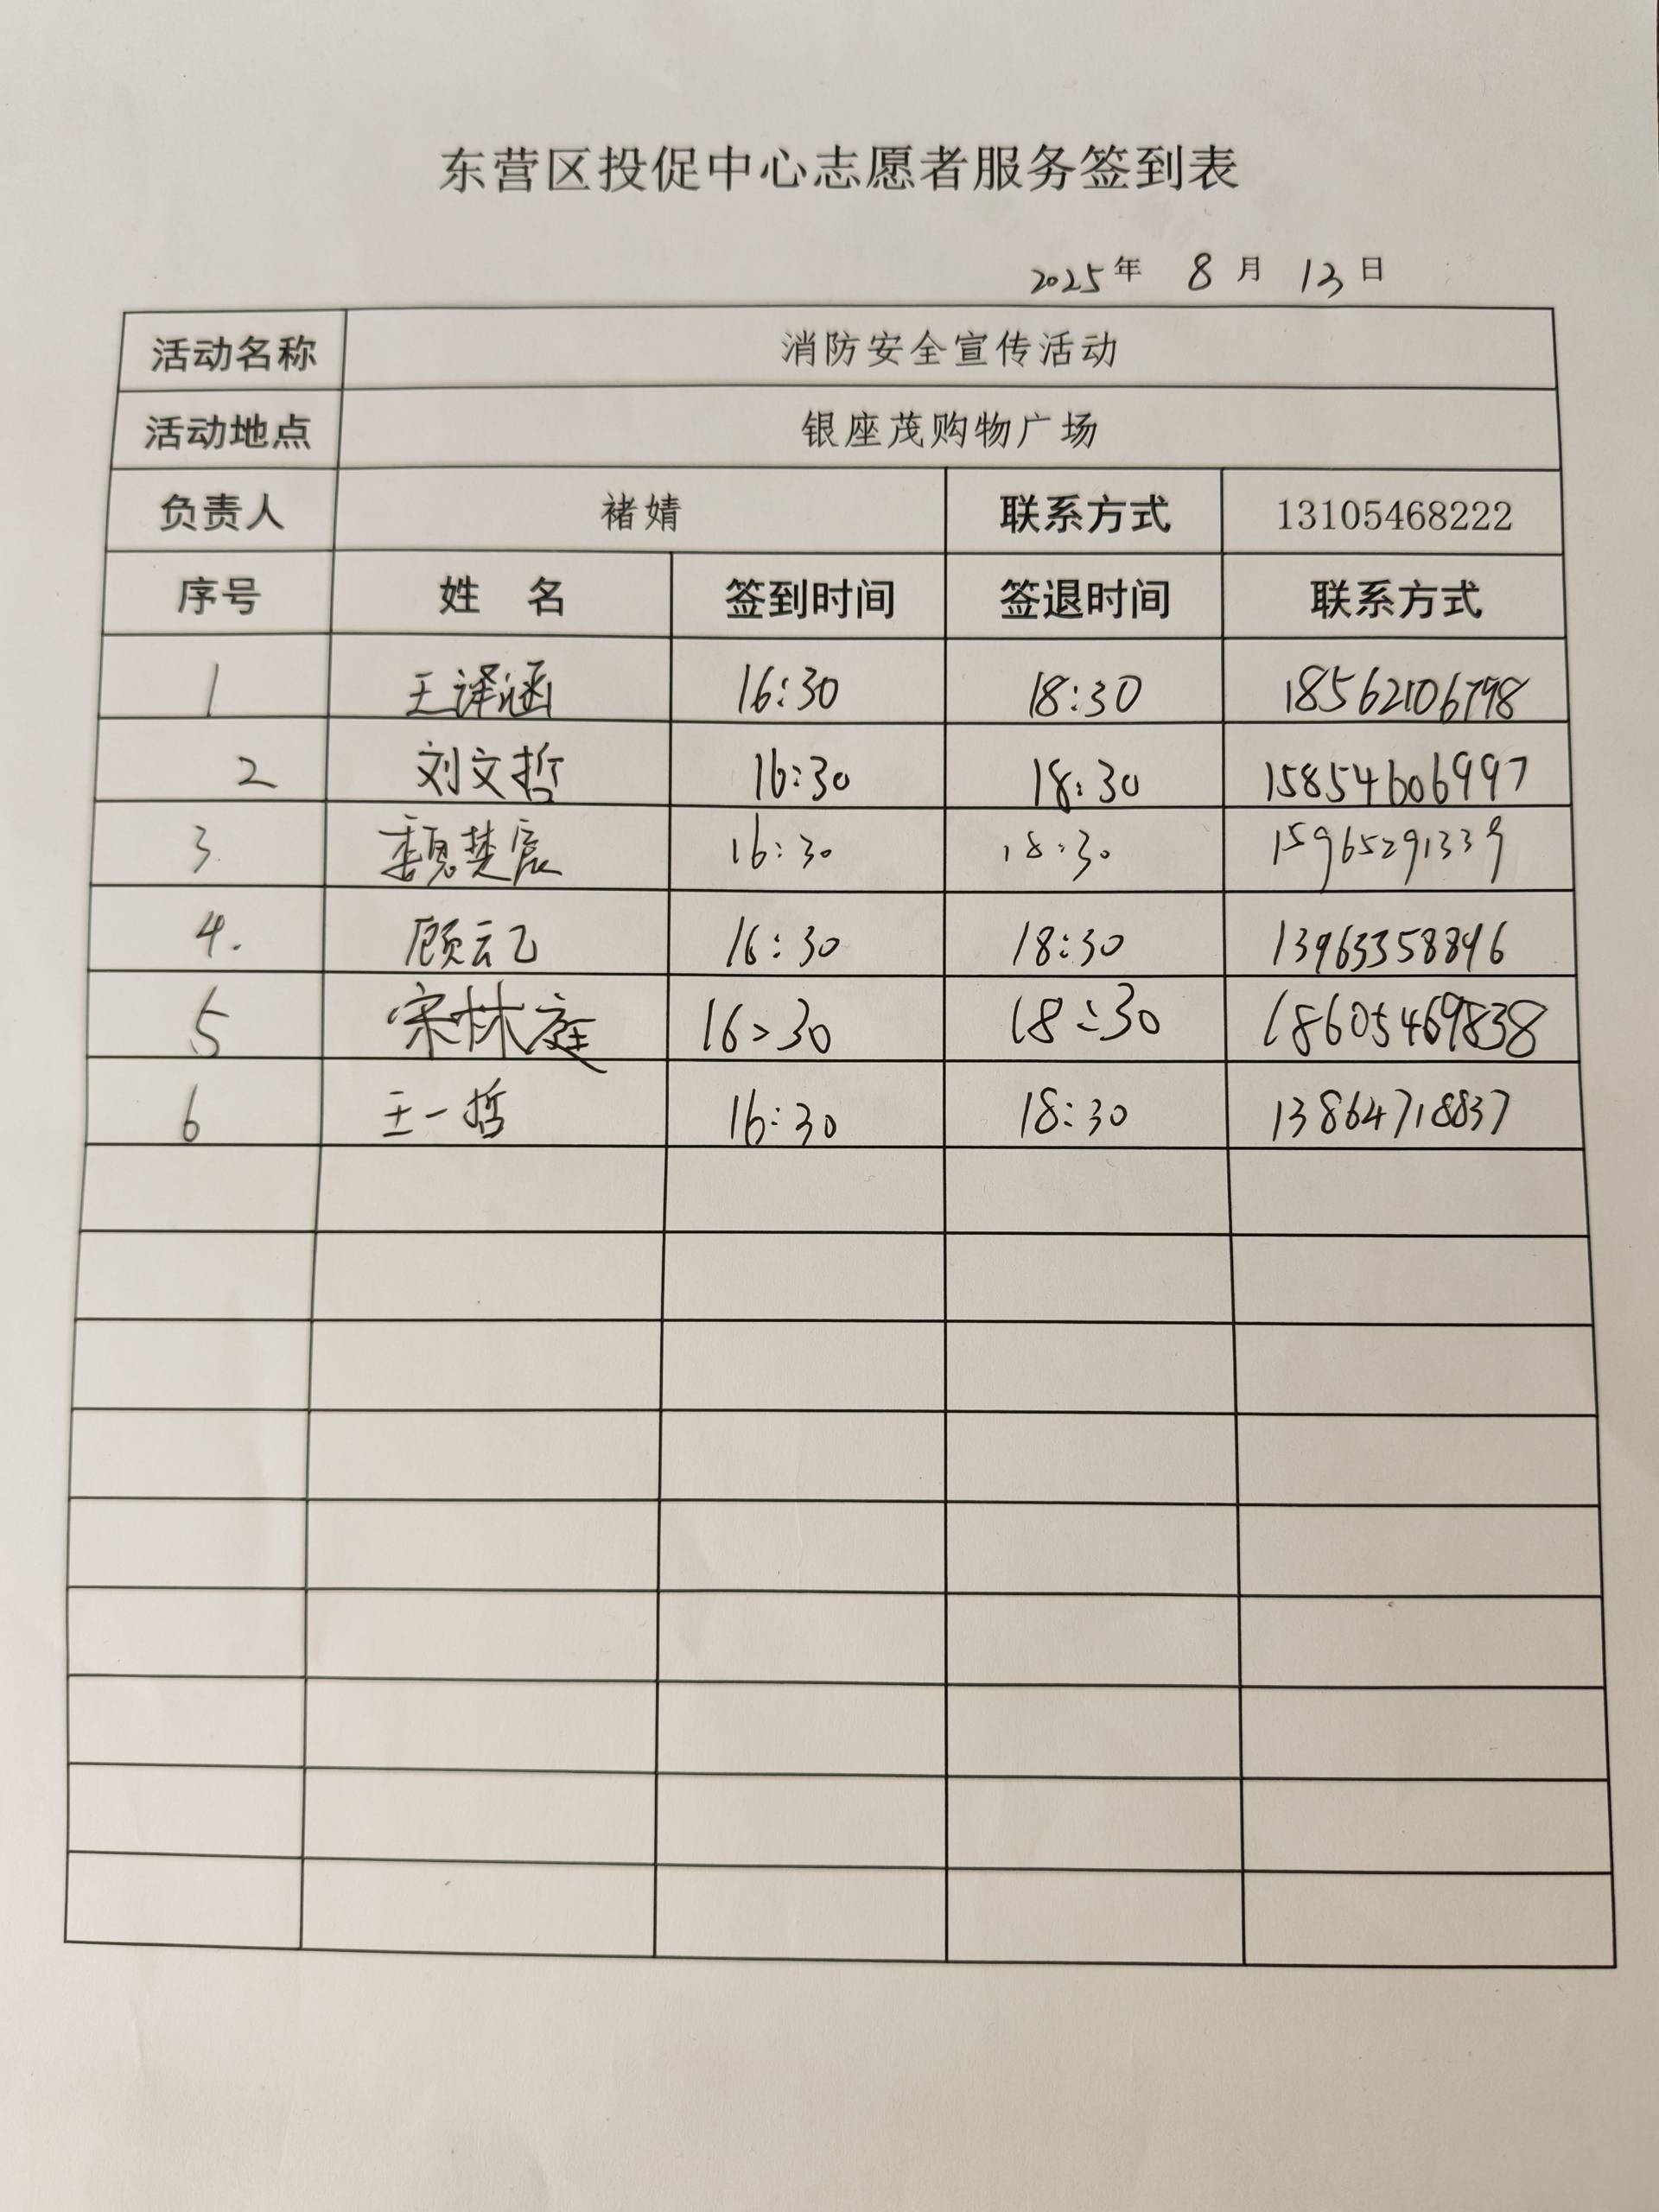 东营区投促中心志愿者服务签到表
2025年 8月 13日
活动名称 消防安全宣传活动
活动地点 银座茂购物广场
负责人 褚婧 联系方式 13105468222
序号 姓 名 签到时间 签退时间 联系方式
1 王译涵 16:30 18:30 18562106798
2 刘文哲 16:30 18:30 15854606997
3 魏楚宸 16:30 18:30 15965291339
4. 顾云飞 16:30 18:30 13963358896
5 宋林庭 16:30 18:30 18605469838
6 王一哲 16:30 18:30 13864718837